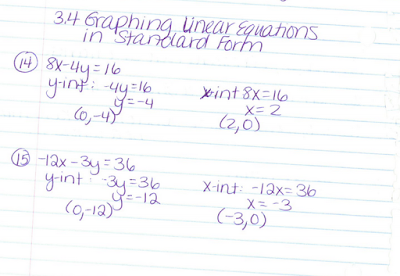 3.4 Graphing Linear Equations
in Standard Form
14 8x-4y=16
y-int: -4y=16
y=-4
(0,-4)
x-int 8x=16
x=2
(2,0)
15 -12x-3y=36
y-int: -3y=36
y=-12
(0,-12)
x-int: -12x=36
x=-3
(-3,0)